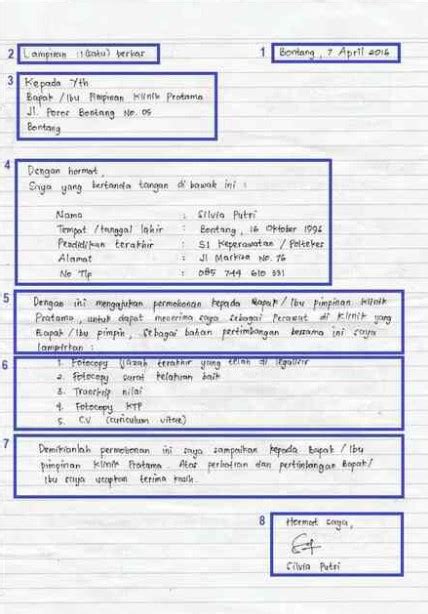 2 Lampiran : 1 (satu) berkas
1 Bontang, 7 April 2016
3 Kepada Yth
Bapak / Ibu Pimpinan Klinik Pratama
Jl. Poros Bontang No. 05
Bontang
4 Dengan hormat,
Saya yang bertanda tangan di bawah ini :
Nama : Silvia Putri
Tempat / tanggal lahir : Bontang, 16 Oktober 1996
Pendidikan terakhir : S1 Keperawatan / Poltekes
Alamat : Jl Markisa No. 76
No Tlp : 085 744 610 531
5 Dengan ini mengajukan permohonan kepada Bapak / Ibu pimpinan Klinik
Pratama, untuk dapat menerima saya sebagai Perawat di Klinik yang
Bapak / Ibu pimpin, Sebagai bahan pertimbangan bersama ini saya
lampirkan :
6
1. Fotocopy Ijazah terakhir yang telah di legalisir
2. Fotocopy surat kelakuan baik
3. Transkip nilai
4. Fotocopy KTP
5. C.V (curiculum vitae)
7 Demikianlah permohonan ini saya sampaikan kepada Bapak / Ibu
pimpinan Klinik Pratama. Atas perhatian dan pertimbangan Bapak/
Ibu saya ucapkan terima kasih.
8 Hormat saya,
Silvia Putri